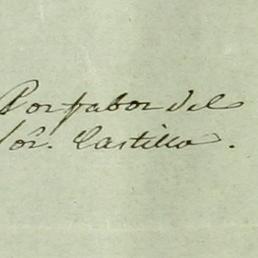 Por fabor del
Sor. Castillo.